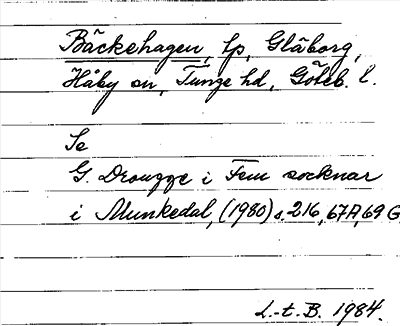 Bäckehagen, lp, Gläborg,
Håby sn, Tunge hd, Göteb. l.
Se
G. Drougge i Fem socknar
i Munkedal, (1980) s. 216, 67A, 69 G
L.-t. B. 1984.